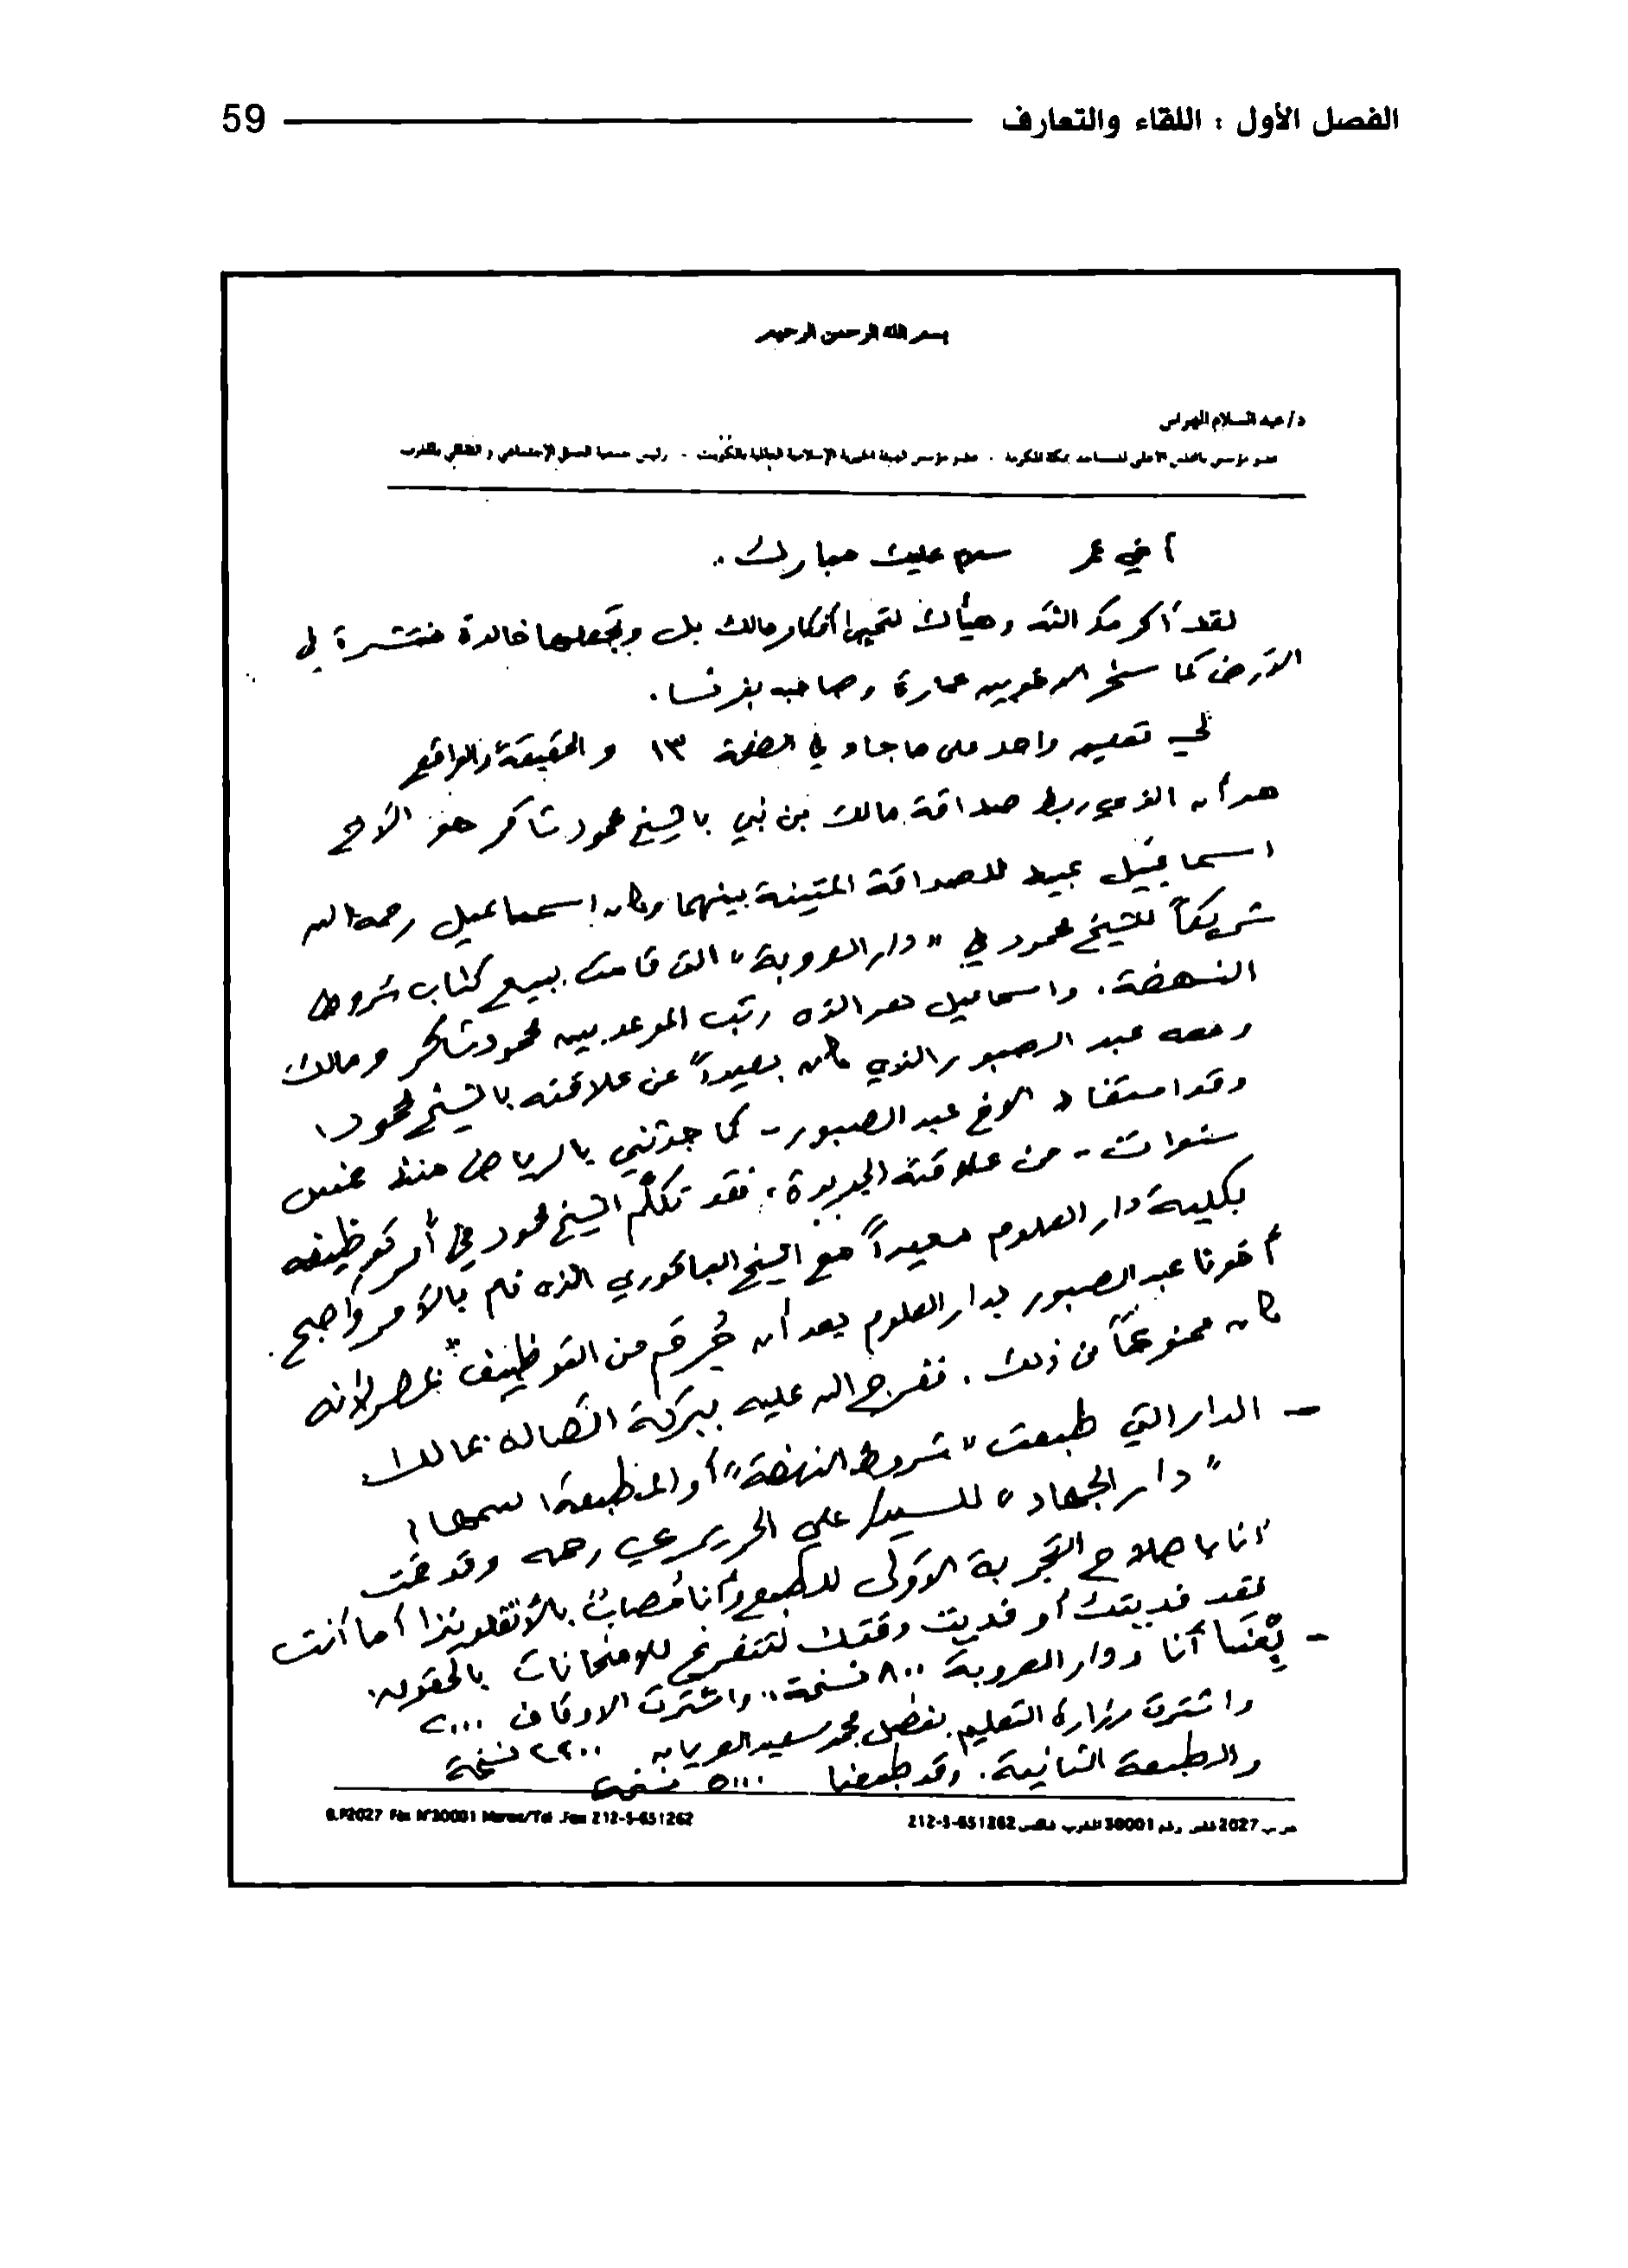 الفصل الأول : اللقاء والتعارف 59
بسم الله الرحمن الرحيم
د/عبد السلام الهراس
عضو مؤسس بالمجلس الأعلى للمساجد بمكة المكرمة - عضو مؤسس الهيئة الخيرية الإسلامية العالمية بالكويت - رئيس جمعية العمل الإجتماعي و الثقافي بالمغرب
أخي عمر سلام عليك مبارك..
لقد أكرمك الله وهيأك لتحيي أفكار مالك بل وتجعلها خالدة منتشرة في
الأرض كما سخر الدخويين عمارة وصاحبه بفرنسا.
لي تعليق واحد على ما جاء في الصفحة ١٣ والحقيقة والواقع
هو أن الذي ربط صداقة مالك بن نبي بالشيخ محمود شاكر هو الأخ
اسماعيل عبيد للصداقة المتينة بينهما وكان اسماعيل رحمه الله
شريكاً للشيخ محمود في "دار العروبة" التي قامت ببيع كتاب شروط
النهضة. واسماعيل هو الذي رتب الموعد بين محمود شاكر ومالك
ومعه عبد الصبور الذي كان بعيداً عن علاقته بالشيخ محمود،
وقد استفاد الأخ عبد الصبور - كما حدثني بالرياض منذ خمس
سنوات - من علاقته الجديدة، فقد تكلم الشيخ محمود في أمر توظيفه
بكلية دار العلوم معيداً مع الشيخ الباقوري الذي قام بالأمر وأصبح
أخونا عبد الصبور بدار العلوم بعد أن حُرِم من التوظيف بمصر لأنه
كان ممنوعاً من ذلك. ففرج الله عليه ببركة اتصاله بمالك
- الدار التي طبعت "شروط النهضة" أو المطبعة اسمها:
"دار الجهاد" للسيد/ علي الخربوطي رحمه وقد قمت
أنا بإصلاح التجربة الأولى للطبع وأنا مصاب بالأنفلونزا أما أنت
فقد فديتك أو فديت وقتك لتتفرغ للامتحانات بالحقوق.
- بِعْنا أنا ودار العروبة ٨٠٠ نسخة، واشترت الأوقاف ٢٠٠٠
واشترت وزارة التعليم بفضل محمد سعيد العريان ٢٢٠٠ نسخة
والطبعة الثانية. وقد طبعنا ٥٠٠٠ نسخة
ص.ب 2027 فاس رقم 30001 المغرب فاكس 212-5-651262
B.P2027 Fès N°30001 Maroc/Tel .Fax 212-5-651262